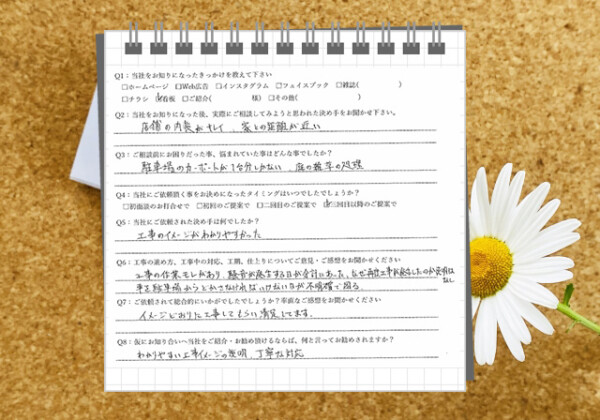 Q1：当社をお知りになったきっかけを教えて下さい
□ホームページ □Web広告 □インスタグラム □フェイスブック □雑誌( )
□チラシ ☑看板 □ご紹介( 様) □その他( )
Q2：当社をお知りになった後、実際にご相談してみようと思われた決め手をお聞かせ下さい。
店舗の内装がキレイ、家との距離が近い
Q3：ご相談前にお困りだった事、悩まれていた事はどんな事でしたか？
駐車場のカーポートが1台分しかない、庭の雑草の処理
Q4：当社にご依頼頂く事をお決めになったタイミングはいつでしたでしょうか？
□初面談のお打合せで □初回のご提案で □二回目のご提案で ☑三回目以降のご提案で
Q5：当社にご依頼された決め手は何でしたか？
工事のイメージがわかりやすかった
Q6：工事の進め方、工事中の対応、工期、仕上りについてご意見・ご感想をお聞かせください
工事の作業モレがあり、騒音が発生する日が余計にあった。なぜ再度工事が発生したのか説明はなし
車を駐車場からどかさなければいけない日が不明確で困る。
Q7：ご依頼されて総合的にいかがでしたでしょうか？率直なご感想をお聞かせください
イメージどおりに工事してもらい満足してます。
Q8：仮にお知り合いへ当社をご紹介・お勧め頂けるならば、何と言ってお勧めされますか？
わかりやすい工事イメージの説明、丁寧な対応